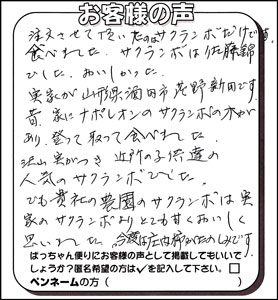 お客様の声
注文させて頂いたのはサクランボだけです。
食べれた。サクランボは佐藤錦
でした。おいしかった。
実家が山形県酒田市广野新田です。
昔、家にナポレオンのサクランボの木が
あり、登って取って食べれた。
沢山実がつき 近所の子供達の
人気のサクランボでした。
でも貴社の農園のサクランボは実
家のサクランボよりとても甘くおいしく
思いれた。今後は庄内柿がたのしみです。
ぱっちゃん便りにお客様の声として掲載してもいいで
しょうか?匿名希望の方は✓を記入して下さい。□
ペンネームの方( )